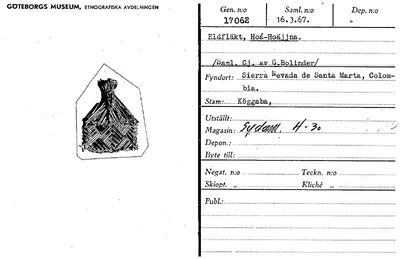 GÖTEBORGS MUSEUM, ETNOGRAFISKA AVDELNINGEN
Gen. n:o Saml. n:o Dep. n:o
17062 16.3.67.
Eldfläkt, Hoá-Hoájjna.
/Saml. Gj. av G.Bolinder/
Fyndort: Sierra Nevada de Santa Marta, Colom-
bia.
Stam: Kåggaba,
Utställt:
Magasin: Sydam. H-30
Depon.:
Byte till:
Negat. n:o Teckn. n:o
Skiopt. „ Kliché „
Publ.: